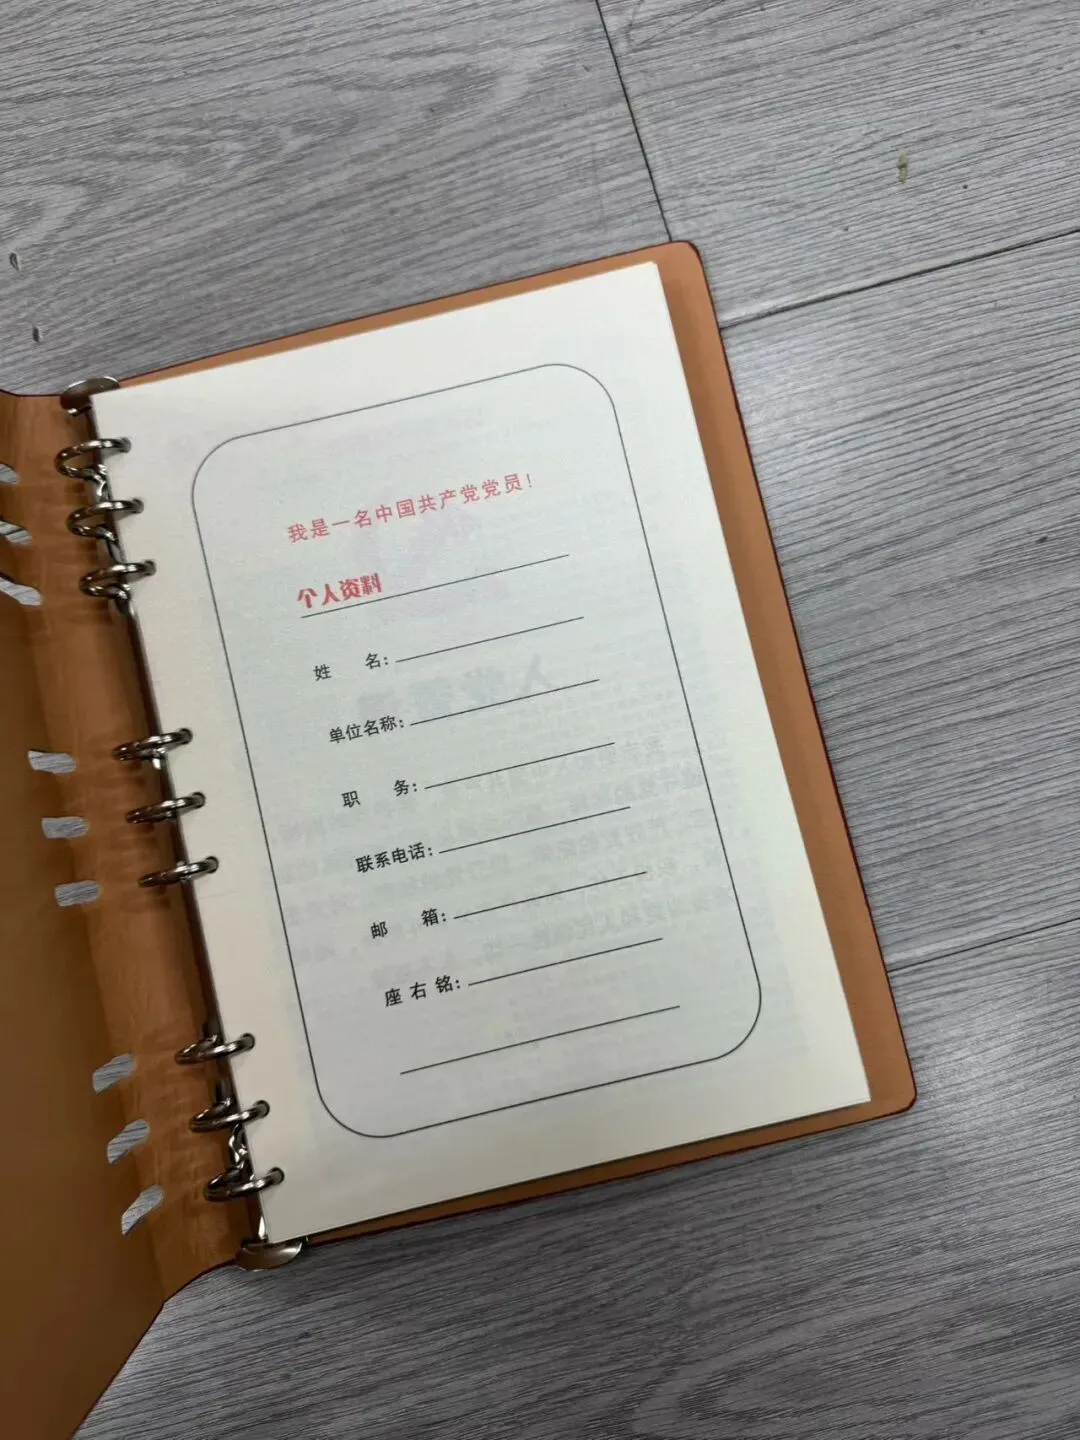 我是一名中国共产党党员！
个人资料
姓 名：
单位名称：
职 务：
联系电话：
邮 箱：
座右铭：